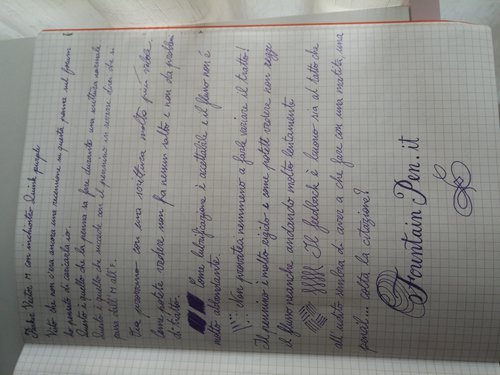 Parker Vector M con inchiostro Quink purple
Visto che non c'era ancora una recensione su questa penna nel forum
ho pensato di caricarla io.
Questo è quello che la penna sa fare durante una scrittura normale
Questo è quello che succede con il pennino in
passa dall'M all'F.
Ora passiamo con una scrittura molto più veloce
Come potete vedere non fa nessun salto e non da problemi
di tratto.
Come lubrificazione è accettabile e il flusso non è
molto abbondante.
Non provateci nemmeno a farle variare il tratto!
Il pennino è molto rigido e come potete vedere non regge
il flusso neanche andando molto lentamente
Il feedback è buono sia al tatto che
all'udito sembra di avere a che fare con una matita, una
penna!... colta la citazione?
Fountain Pen.it